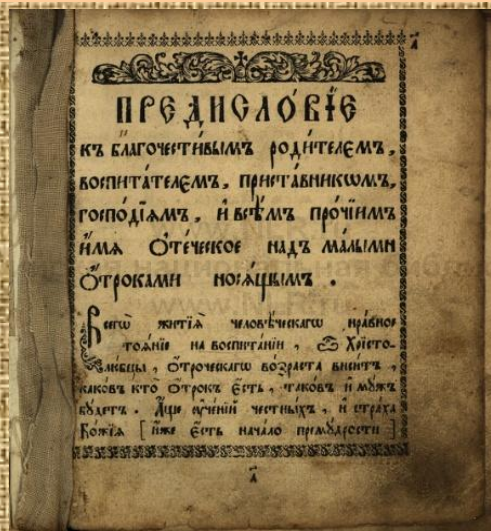 а҃
ПРЕДИСЛО́ВЇЕ
къ благочести́вымъ роди́телємъ,
воспита́телємъ, приста́вникѡмъ,
господі́ямъ, и҆ всѣ̑мъ про́чіимъ
и҆́мя Ѻ҆те́ческое надъ ма́лыми
Ѻ҆́троками нося́щымъ .
Всегѡ̀ житїѧ̀ человѣ́ческагѡ нра́вное
тоѧ́нїе на воспита́нїи , Ѽ Хрїсто-
лю́бцы , ѻ҆́троческагѡ во́зраста виси́тъ ,
каковъ кто ѻ҆́трокъ є҆́сть , тако́въ и҆ мꙋ́жъ
бꙋ́детъ . А҆́ще ᲂу҆че́нїй че́стныхъ , и҆ стра́ха
Бо́жїѧ [ и҆́же є҆́сть нача́ло премꙋ́дрости ]
а҃